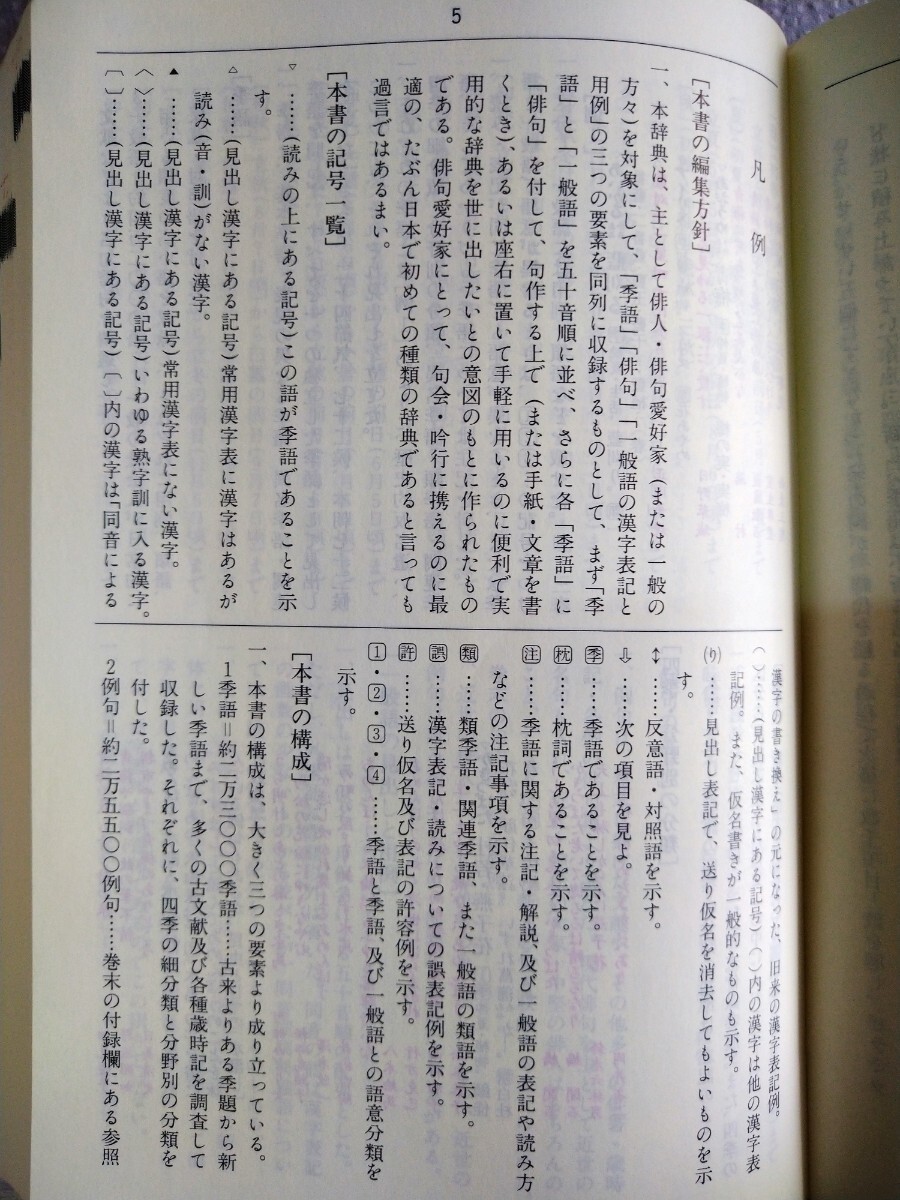 5
凡例
［本書の編集方針］
一、本辞典は、主として俳人・俳句愛好家（または一般の
方々）を対象にして、「季語」「俳句」「一般語の漢字表記と
用例」の三つの要素を同列に収録するものとして、まず「季
語」と「一般語」を五十音順に並べ、さらに各「季語」に
「俳句」を付して、句作する上で（または手紙・文章を書
くとき）、あるいは座右に置いて手軽に用いるのに便利で実
用的な辞典を世に出したいとの意図のもとに作られたもの
である。俳句愛好家にとって、句会・吟行に携えるのに最
適の、たぶん日本で初めての種類の辞典であると言っても
過言ではあるまい。
［本書の記号一覧］
▽……（読みの上にある記号）この語が季語であることを示
す。
△……（見出し漢字にある記号）常用漢字表に漢字はあるが
読み（音・訓）がない漢字。
▲……（見出し漢字にある記号）常用漢字表にない漢字。
〈 〉……（見出し漢字にある記号）いわゆる熟字訓に入る漢字。
〔 〕……（見出し漢字にある記号）〔 〕内の漢字は「同音による
漢字の書き換え」の元になった、旧来の漢字表記例。
（ ）……（見出し漢字にある記号）（ ）内の漢字は他の漢字表
記例。また、仮名書きが一般的なものも示す。
(り)……見出し表記で、送り仮名を消去してもよいものを示
す。
↕……反意語・対照語を示す。
⇩……次の項目を見よ。
季……季語であることを示す。
枕……枕詞であることを示す。
注……季語に関する注記・解説、及び一般語の表記や読み方
などの注記事項を示す。
類……類季語・関連季語、また一般語の類語を示す。
誤……漢字表記・読みについての誤表記例を示す。
許……送り仮名及び表記の許容例を示す。
1・2・3・4……季語と季語、及び一般語との語意分類を
示す。
［本書の構成］
一、本書の構成は、大きく三つの要素より成り立っている。
1季語＝約二万三〇〇〇季語……古来よりある季題から新
しい季語まで、多くの古文献及び各種歳時記を調査して
収録した。それぞれに、四季の細分類と分野別の分類を
付した。
2例句＝約二万五五〇〇例句……巻末の付録欄にある参照